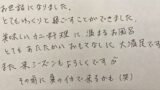 お世話になりました。
とてもゆっくりと過ごすことができました。
美味しいカニ料理に温まるお風呂
とてもあたたかいおもてなしに大満足です
また来シーズンもよろしくですが
その前に夏の件で来るかも(笑)